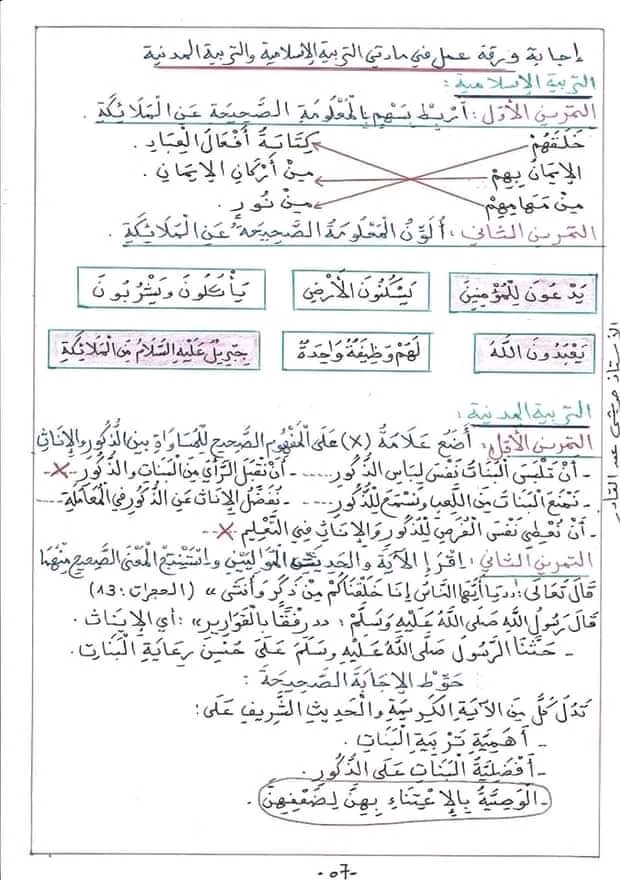 إجابة ورقة عمل في مادتي التربية الإسلامية والتربية المدنية
التربية الإسلامية :
التمرين الأول : أَرْبِطُ بِسَهْمٍ بِالْمَعْلُومَةِ الصَّحِيحَةِ عَنِ الْمَلَائِكَةِ .
خَلْقُهُمْ كِتَابَةُ أَفْعَالِ الْعِبَادِ .
الإِيمَانُ بِهِمْ مِنْ أَرْكَانِ الإِيمَانِ .
مِنْ مَهَامِهِمْ مِنْ نُورٍ .
التمرين الثاني : أُلَوِّنُ الْمَعْلُومَةَ الصَّحِيحَةَ عَنِ الْمَلَائِكَةِ .
يَدْعُونَ لِلْمُؤْمِنِينَ يَسْكُنُونَ الْأَرْضَ يَأْكُلُونَ وَيَشْرَبُونَ
يَعْبُدُونَ اللَّهَ لَهُمْ وَظِيفَةٌ وَاحِدَةٌ جِبْرِيلُ عَلَيْهِ السَّلَامُ مِنَ الْمَلَائِكَةِ
التربية المدنية :
التمرين الأول : أَضَعُ عَلَامَةَ (x) عَلَى الْمَفْهُومِ الصَّحِيحِ لِلْمُسَاوَاةِ بَيْنَ الذُّكُورِ وَالْإِنَاثِ
- أَنْ تَلْبَسَ الْبَنَاتُ نَفْسَ لِبَاسِ الذُّكُورِ ..... - أَنْ نَقْبَلَ الرَّأْيَ مِنَ الْبَنَاتِ وَالذُّكُورِ ..x..
- نَمْنَعُ الْبَنَاتِ مِنَ اللَّعِبِ وَنَسْمَحُ لِلذُّكُورِ ..... - نُفَضِّلُ الْإِنَاثَ عَنِ الذُّكُورِ فِي الْمُعَامَلَةِ ....
- أَنْ نُعْطِيَ نَفْسَ الْفُرَصِ لِلذُّكُورِ وَالْإِنَاثِ فِي التَّعْلِيمِ ..x..
التمرين الثاني : اِقْرَأْ الآيَةَ وَالْحَدِيثَ الْمُوَالِيَيْنِ وَاسْتَنْتِجْ الْمَعْنَى الصَّحِيحَ مِنْهُمَا
قَالَ تَعَالَى : «يَا أَيُّهَا النَّاسُ إِنَّا خَلَقْنَاكُمْ مِنْ ذَكَرٍ وَأُنْثَى» (الحجرات : 13)
قَالَ رَسُولُ اللَّهِ صَلَّى اللَّهُ عَلَيْهِ وَسَلَّمَ : «رِفْقًا بِالْقَوَارِيرِ» : أي الإناث .
- حَثَّنَا الرَّسُولُ صَلَّى اللَّهُ عَلَيْهِ وَسَلَّمَ عَلَى حُسْنِ رِعَايَةِ الْبَنَاتِ .
حَوِّطْ الإِجَابَةَ الصَّحِيحَةَ :
تَدُلُّ كُلٌّ مِنَ الآيَةِ الْكَرِيمَةِ وَالْحَدِيثِ الشَّرِيفِ عَلَى :
- أَهَمِّيَّةِ تَرْبِيَةِ الْبَنَاتِ .
- أَفْضَلِيَّةِ الْبَنَاتِ عَلَى الذُّكُورِ .
- الْوَصِيَّةُ بِالإِعْتِنَاءِ بِهِنَّ لِضَعْفِهِنَّ .
- 07 -
الأستاذ عبد القادر